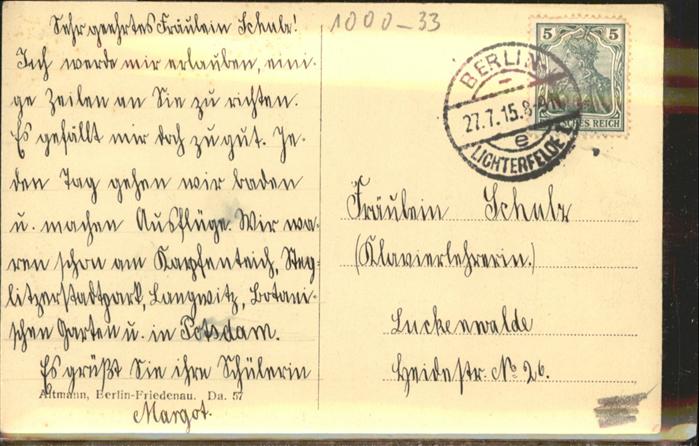 1000-33
Sehr geehrtes Fräulein Schulz!
Ich werde mir erlauben, eini-
ge Zeilen an Sie zu richten.
Es gefällt mir doch zu gut. Je-
den Tag gehen wir baden
u. machen Ausflüge. Wir wa-
ren schon am Karpfenteich, Steg-
litzerstadtpark, Langwitz, Botani-
schen Garten u. in Potsdam.
Es grüßt Sie ihre Schülerin
Altmann, Berlin-Friedenau. Da. 57
Margot.
5 5
DEUTSCHES REICH
BERLIN
27.7.15.8-9N
e
LICHTERFELDE
Fräulein Schulz
(Klavierlehrerin.)
Luckenwalde
Heidestr. No 26.